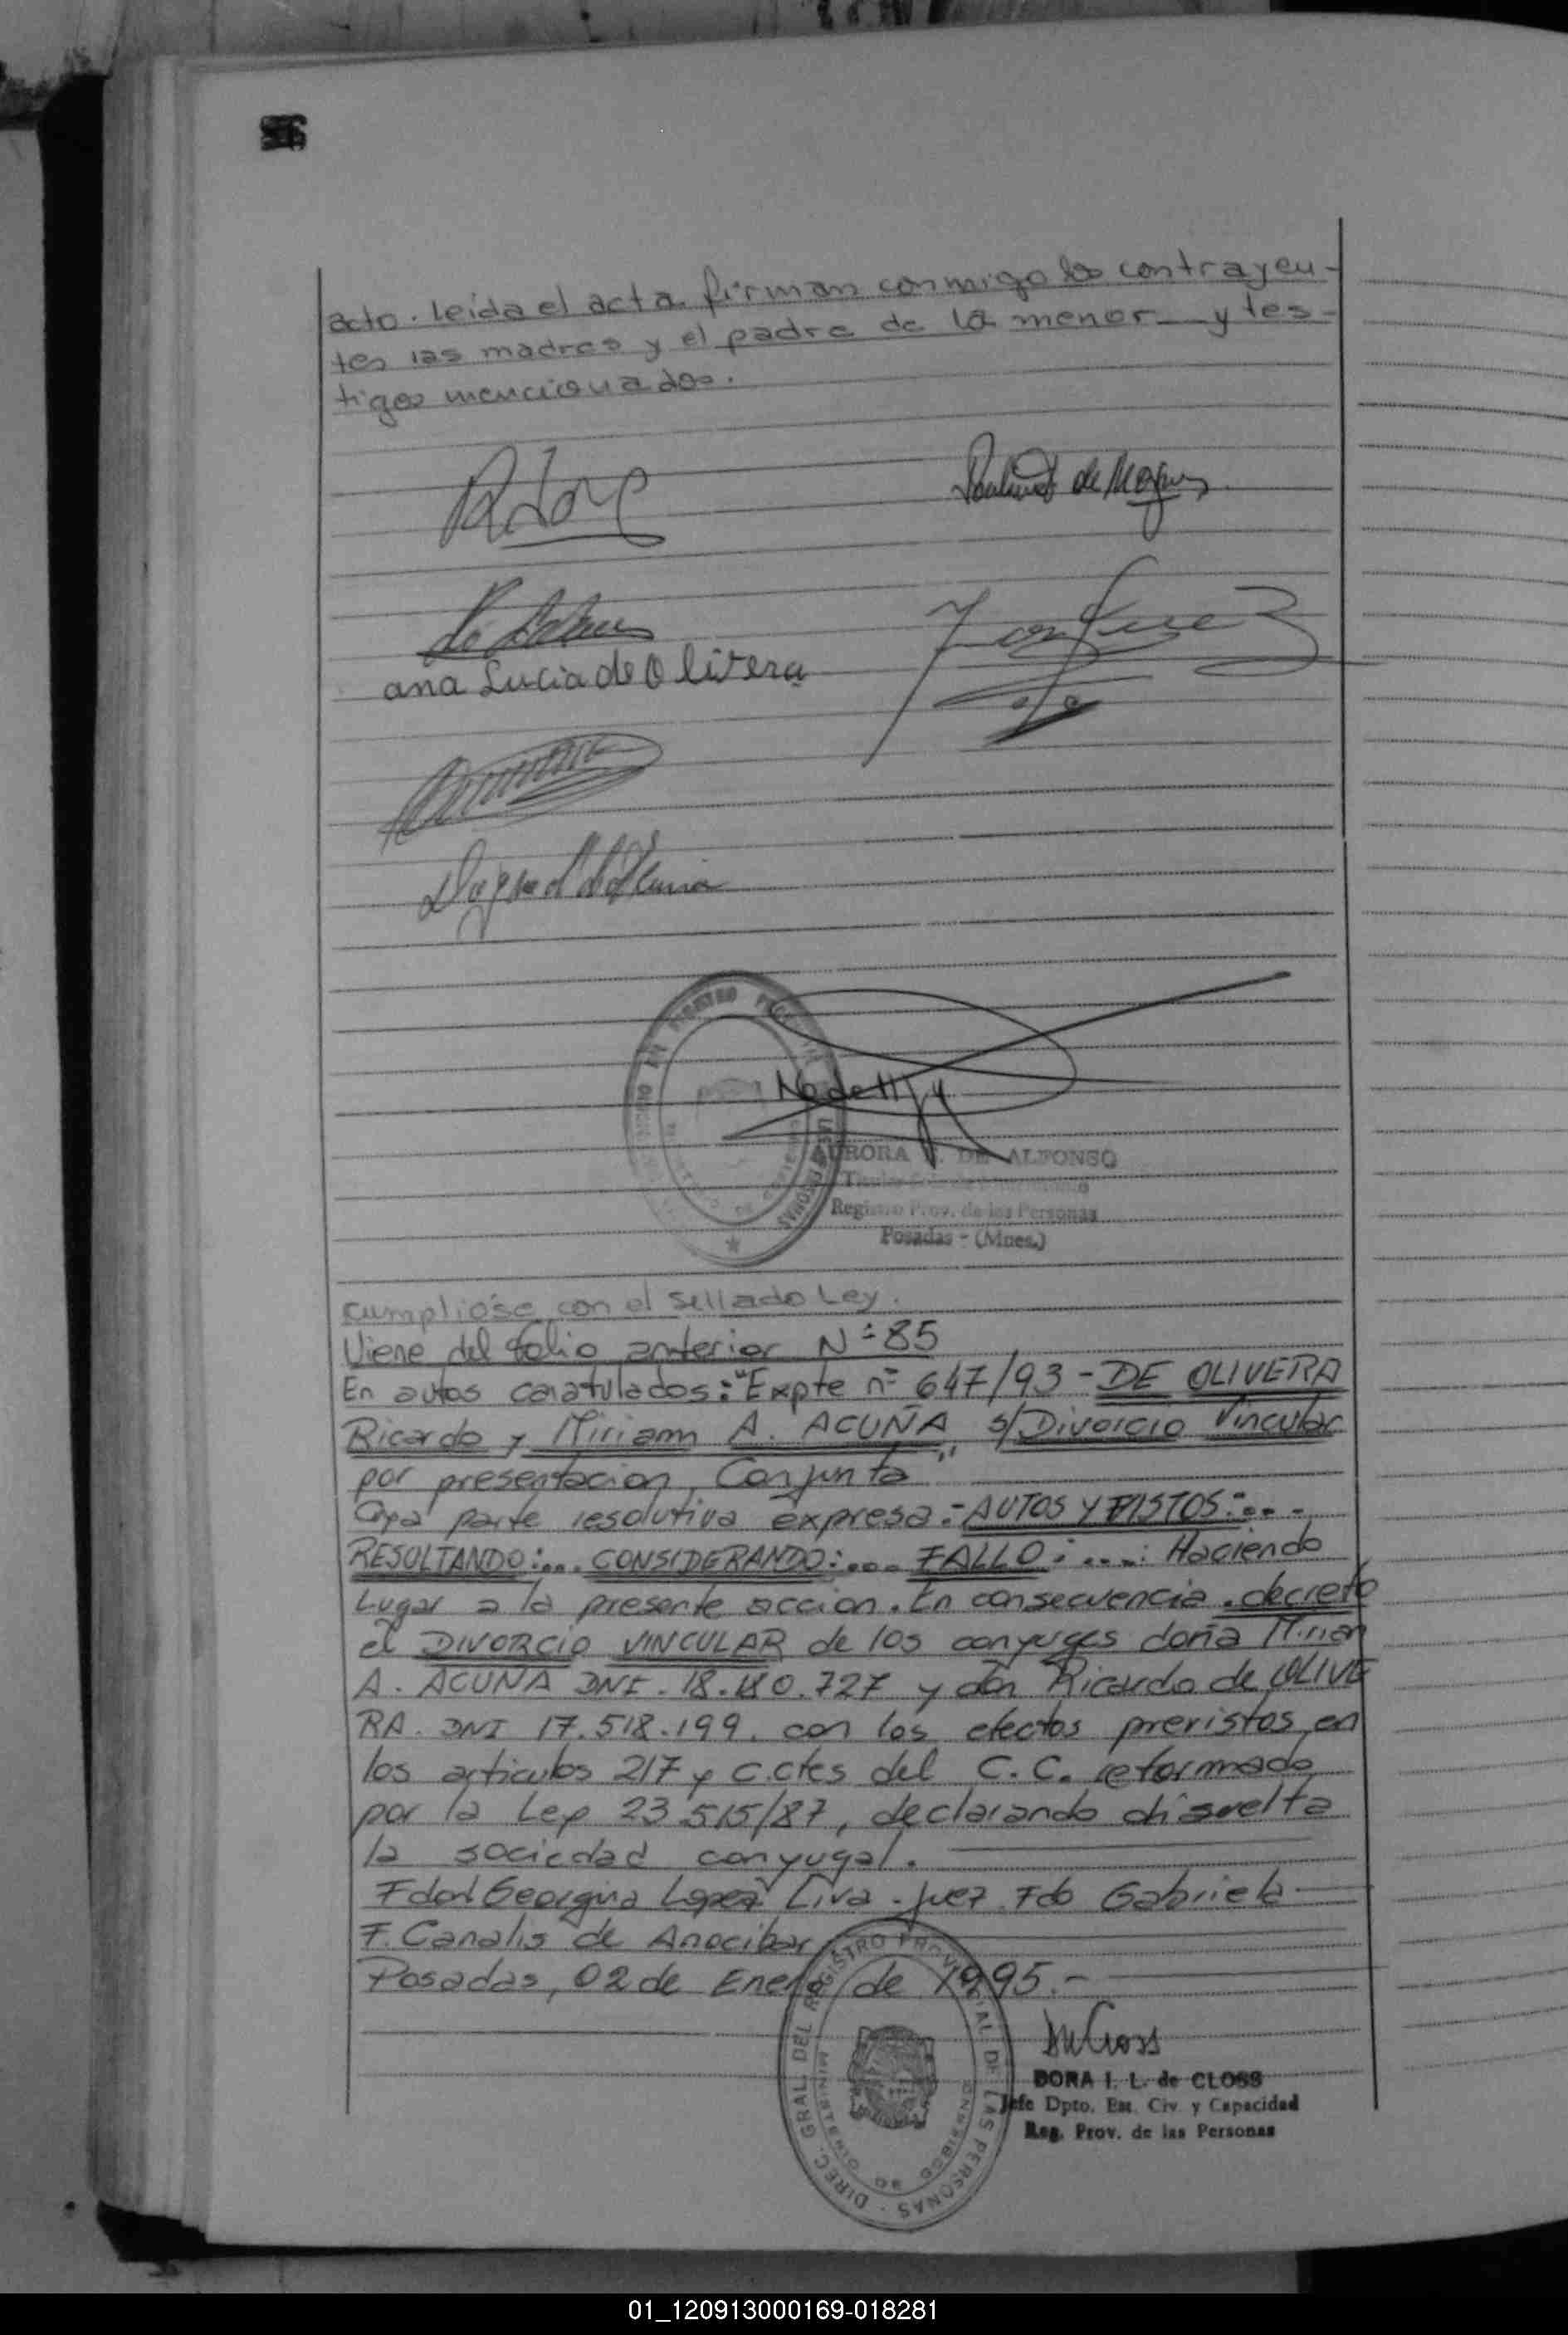 acto. leída el acta. firman conmigo los contrayen-
tes las madres y el padre de la menor y tes-
tigos mencionados.
de Moques
ana Lucia de Olivera
AURORA DE ALFONSO
Registro Prov. de las Personas
Posadas - (Mnes.)
cumplióse con el sellado Ley.
Viene del folio anterior Nº 85
En autos caratulados: "Expte nº 647/93 - DE OLIVERA
Ricardo y Miriam A. ACUÑA s/Divorcio Vincular
por presentacion Conjunta"
Cuya parte resolutiva expresa: - AUTOS Y VISTOS:...
RESULTANDO:... CONSIDERANDO:.... FALLO:....: Haciendo
Lugar a la presente accion. En consecuencia. decreto
el DIVORCIO VINCULAR de los conyuges doña Mirian
A. ACUÑA DNI. 18.180.727 y don Ricardo de OLIVE
RA. DNI 17.518.199. con los efectos previstos en
los articulos 217 y c.ctes del C.C. reformado
por la Ley 23.515/87, declarando disuelta
la sociedad conyugal.
Fdo Georgina Lopez Liva - Juez. Fdo Gabriela
F. Canalis de Anocibar
Posadas, 02 de Enero de 1995.-
DIREC. GRAL. DEL REGISTRO PROVINCIAL DE LAS PERSONAS
MINISTERIO DE GOBIERNO
DORA I. L. de CLOSS
Jefe Dpto. Est. Civ. y Capacidad
Reg. Prov. de las Personas
01_120913000169-018281